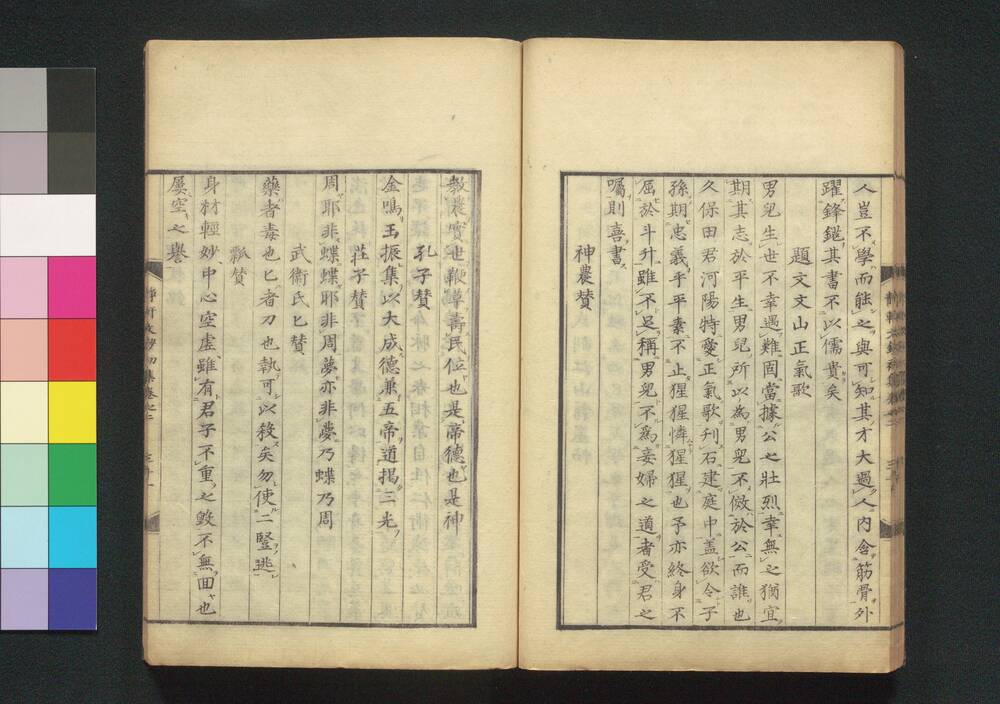 人豈不學而能之與可知其才大過人内含筋骨外
躍鋒鋩其書不以儒貴矣
題文文山正氣歌
男兒生世不幸遇難固當據公之壯烈幸無之猶宜
期其志於平生男兒所以為男兒不倣於公而誰也
久保田君河陽特愛正氣歌刋石建庭中盖欲令子
孫期忠義乎平素不止猩猩憐猩猩也予亦終身不
屈於斗升雖不足稱男兒不為妾婦之道者受君之
囑則喜書
神農賛
教農噴世鞭草壽民位也是帝德也是神
孔子賛
金鳴玉振集以大成德兼五帝道揭三光
莊子賛
周耶非蝶蝶耶非周夢亦非夢乃蝶乃周
武衞氏匕賛
藥者毒也匕者刀也執可以殺矣勿使二豎逃
瓢賛
身材輕妙中心空虛雖有君子不重之毀不無回也
屢空之擧